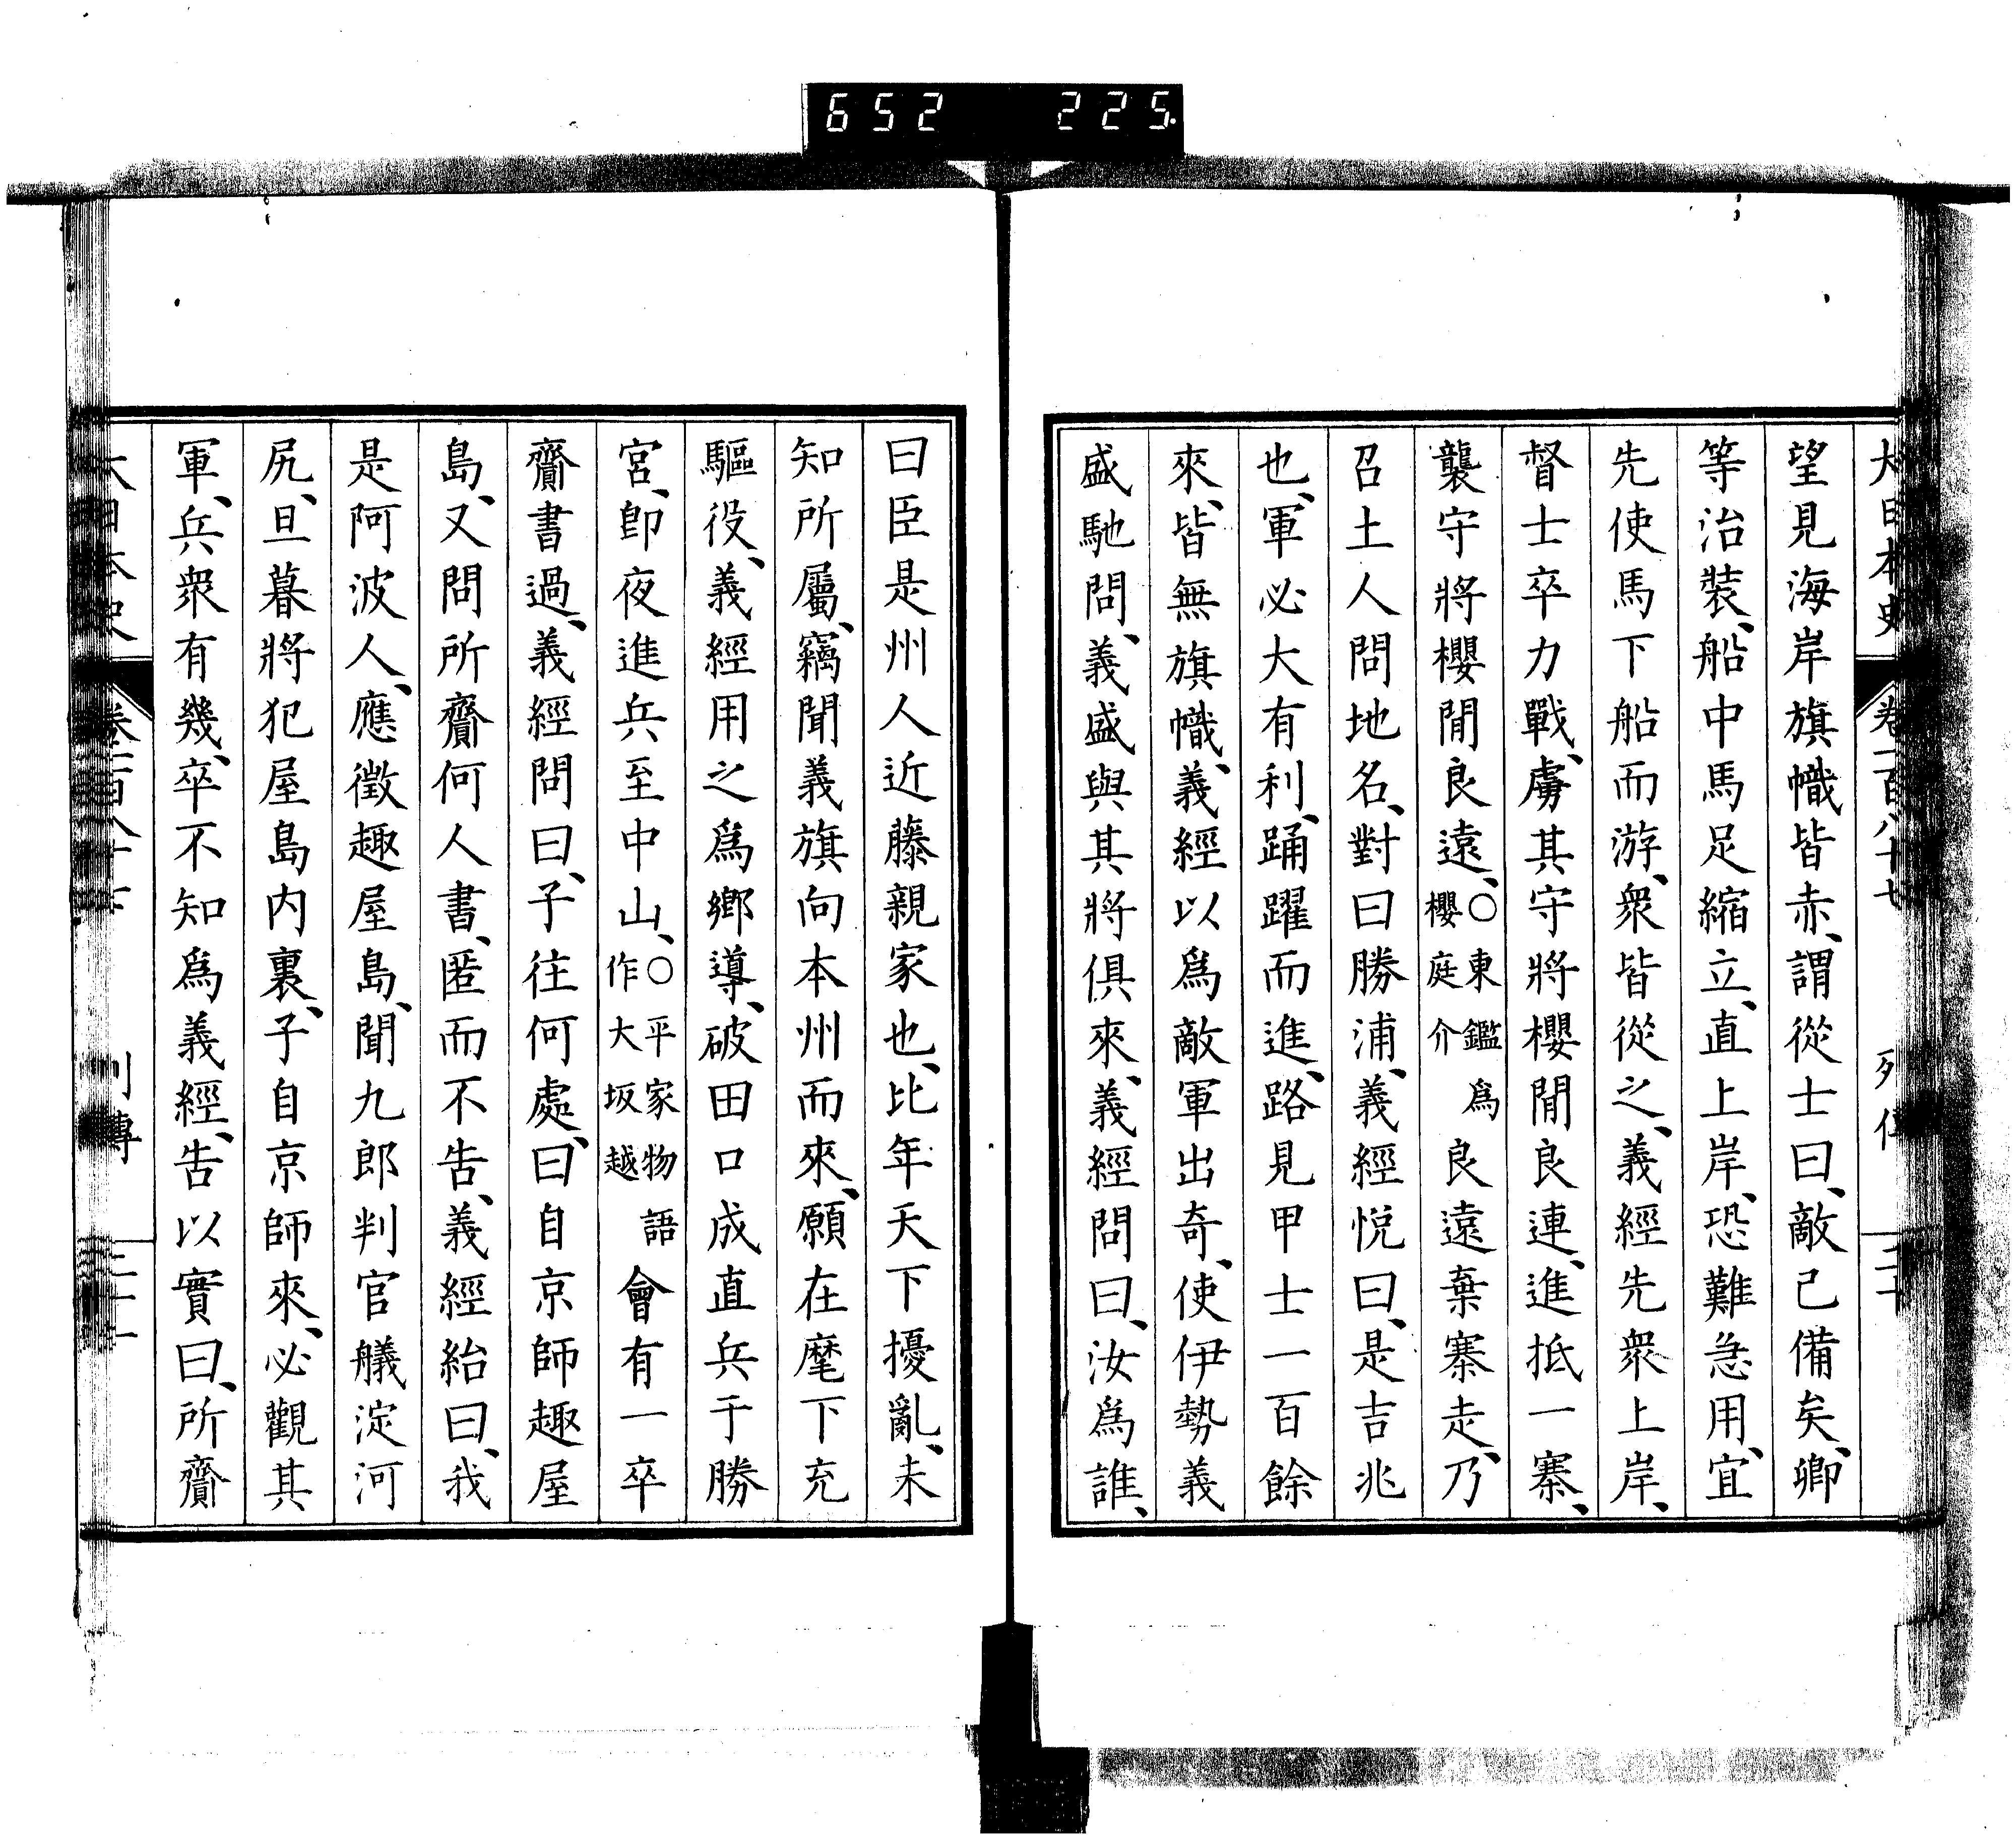 652 225.
大日本史 卷一百八十七 列傳
望見海岸旗幟皆赤、謂從士曰、敵已備矣、卿
等治裝、船中馬足縮立、直上岸、恐難急用、宜
先使馬下船而游、衆皆從之、義經先衆上岸、
督士卒力戰、虜其守將櫻閒良連、進抵一寨、
襲守將櫻閒良遠、○東鑑爲櫻庭介良遠棄寨走、乃
召土人問地名、對曰勝浦、義經悅曰、是吉兆
也、軍必大有利、踊躍而進、路見甲士一百餘
來、皆無旗幟、義經以爲敵軍出奇、使伊勢義
盛馳問、義盛與其將俱來、義經問曰、汝爲誰、
曰臣是州人近藤親家也、比年天下擾亂、未
知所屬、竊聞義旗向本州而來、願在麾下充
驅役、義經用之爲鄉導、破田口成直兵于勝
宮、卽夜進兵至中山、○平家物語作大坂越會有一卒
齎書過、義經問曰、子往何處、曰自京師趣屋
島、又問所齎何人書、匿而不告、義經紿曰、我
是阿波人、應徵趣屋島、聞九郎判官艤淀河
尻、旦暮將犯屋島內裏、子自京師來、必觀其
軍、兵衆有幾、卒不知爲義經、告以實曰、所齎
大日本史 卷一百八十七 列傳